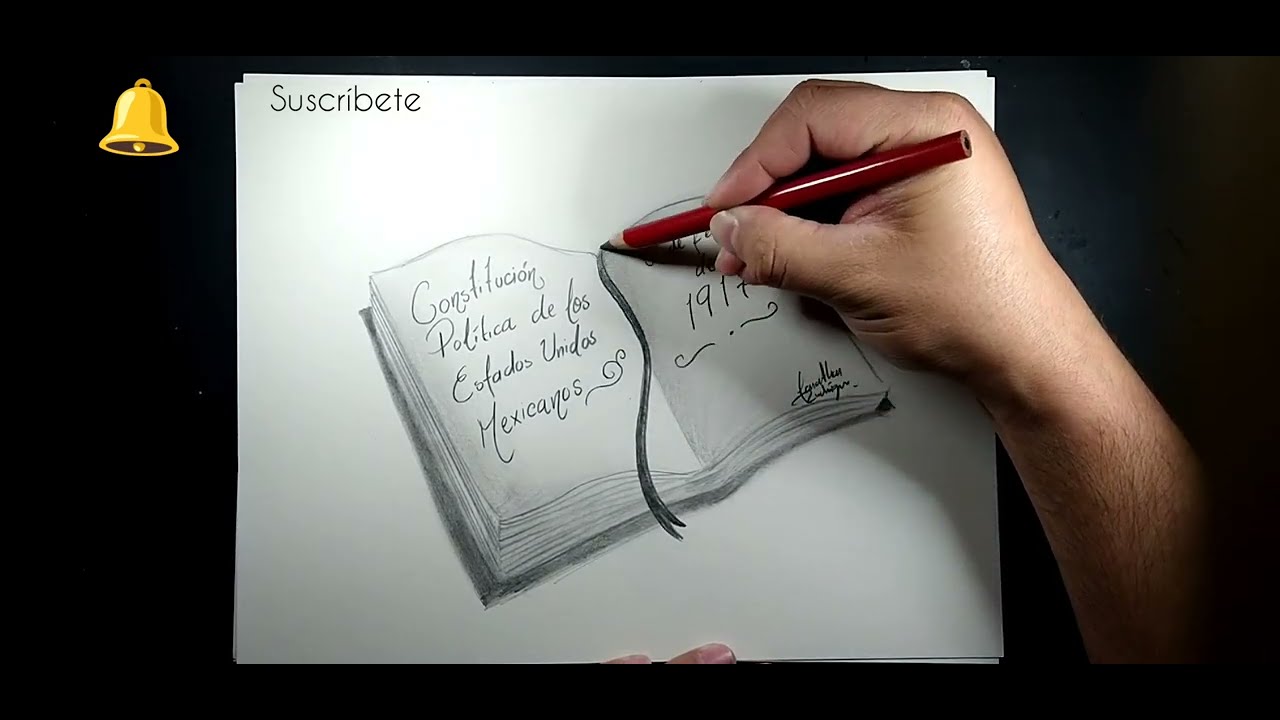 Suscríbete
Constitución
Política de los
Estados Unidos
Mexicanos
de
1917